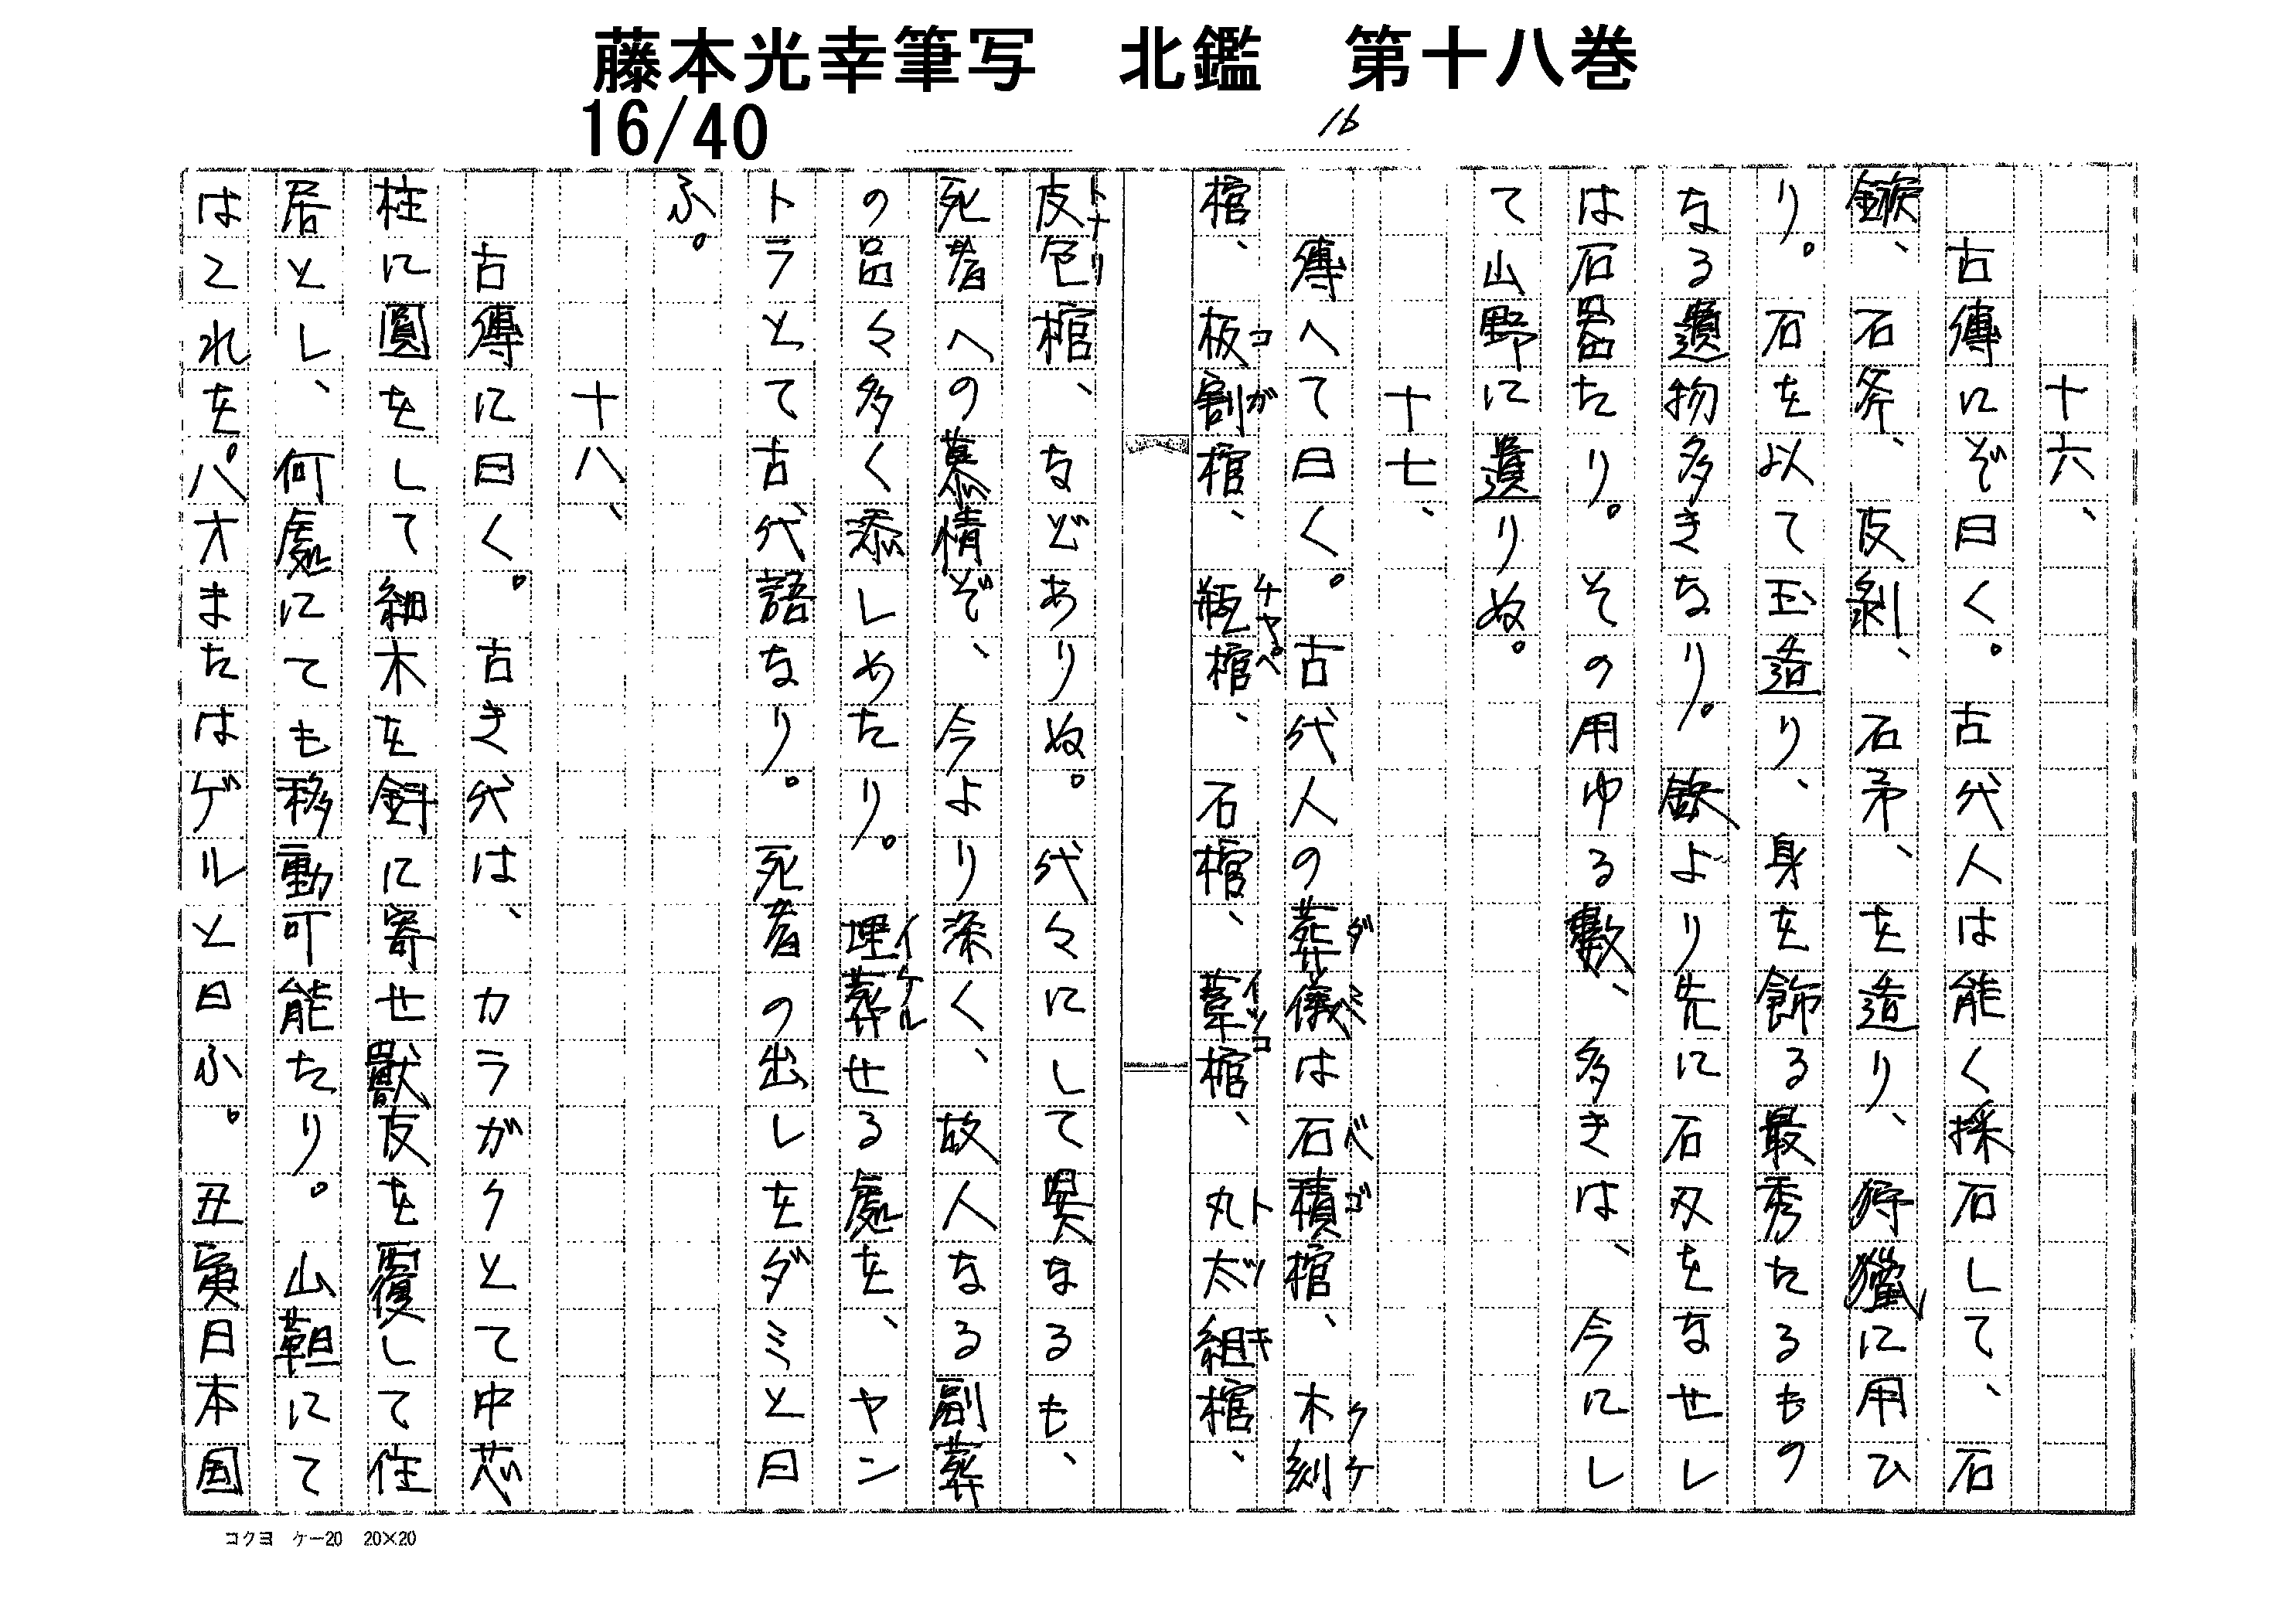 藤本光幸筆写　北鑑　第十八巻
16/40
16
十六、
古傳にぞ曰く。古代人は能く採石して、石
鏃、石斧、皮剝、石矛、を造り、狩獵に用ひ
り。石を以て玉造り、身を飾る最秀たるもの
なる遺物多きなり。鉄より先に石刄をなせし
は石器たり。その用ゆる數、多きは、今にし
て山野に遺りぬ。
十七、
傳へて曰く。古代人の葬儀は石積棺、木刻
ダミヘ　ベゴ　クケ
棺、板割棺、瓶棺、石棺、葦棺、丸太組棺、
コが　ケヤペ　イツコ　トツキ
皮包棺、などありぬ。代々にして異なるも、
トナリ
死者への慕情ぞ、今より深く、故人なる副葬
の品々多く添しめたり。埋葬せる處を、ヤン
イケル
トラとて古代語なり。死者の出しをダミと曰
ふ。
十八、
古傳に曰く。古き代は、カラがクとて中芯
柱に圓をして細木を斜に寄せ獸皮を覆して住
居とし、何處にても移動可能たり。山靼にて
はこれを。八オまたはゲルと曰ふ。丑寅日本国
コクヨ　ケー20　20×20